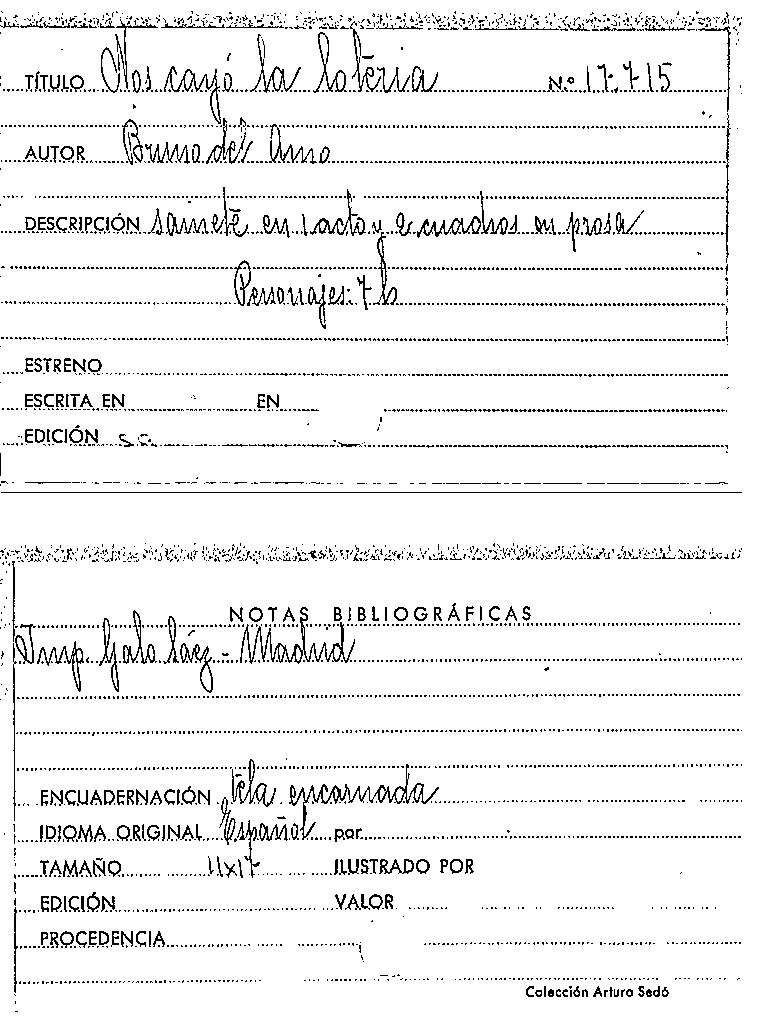 TÍTULO Nos cayó la lotería N.º 17-7-15
AUTOR Bruno del Amo
DESCRIPCIÓN sainete en 1 acto y 2 cuadros en prosa
Personajes: 7 h
ESTRENO
ESCRITA EN EN
EDICIÓN sa
NOTAS BIBLIOGRÁFICAS
Imp. Galo Sáez - Madrid
ENCUADERNACIÓN tela encarnada
IDIOMA ORIGINAL Español por
TAMAÑO 11x17 ILUSTRADO POR
EDICIÓN VALOR
PROCEDENCIA
Colección Arturo Sedó